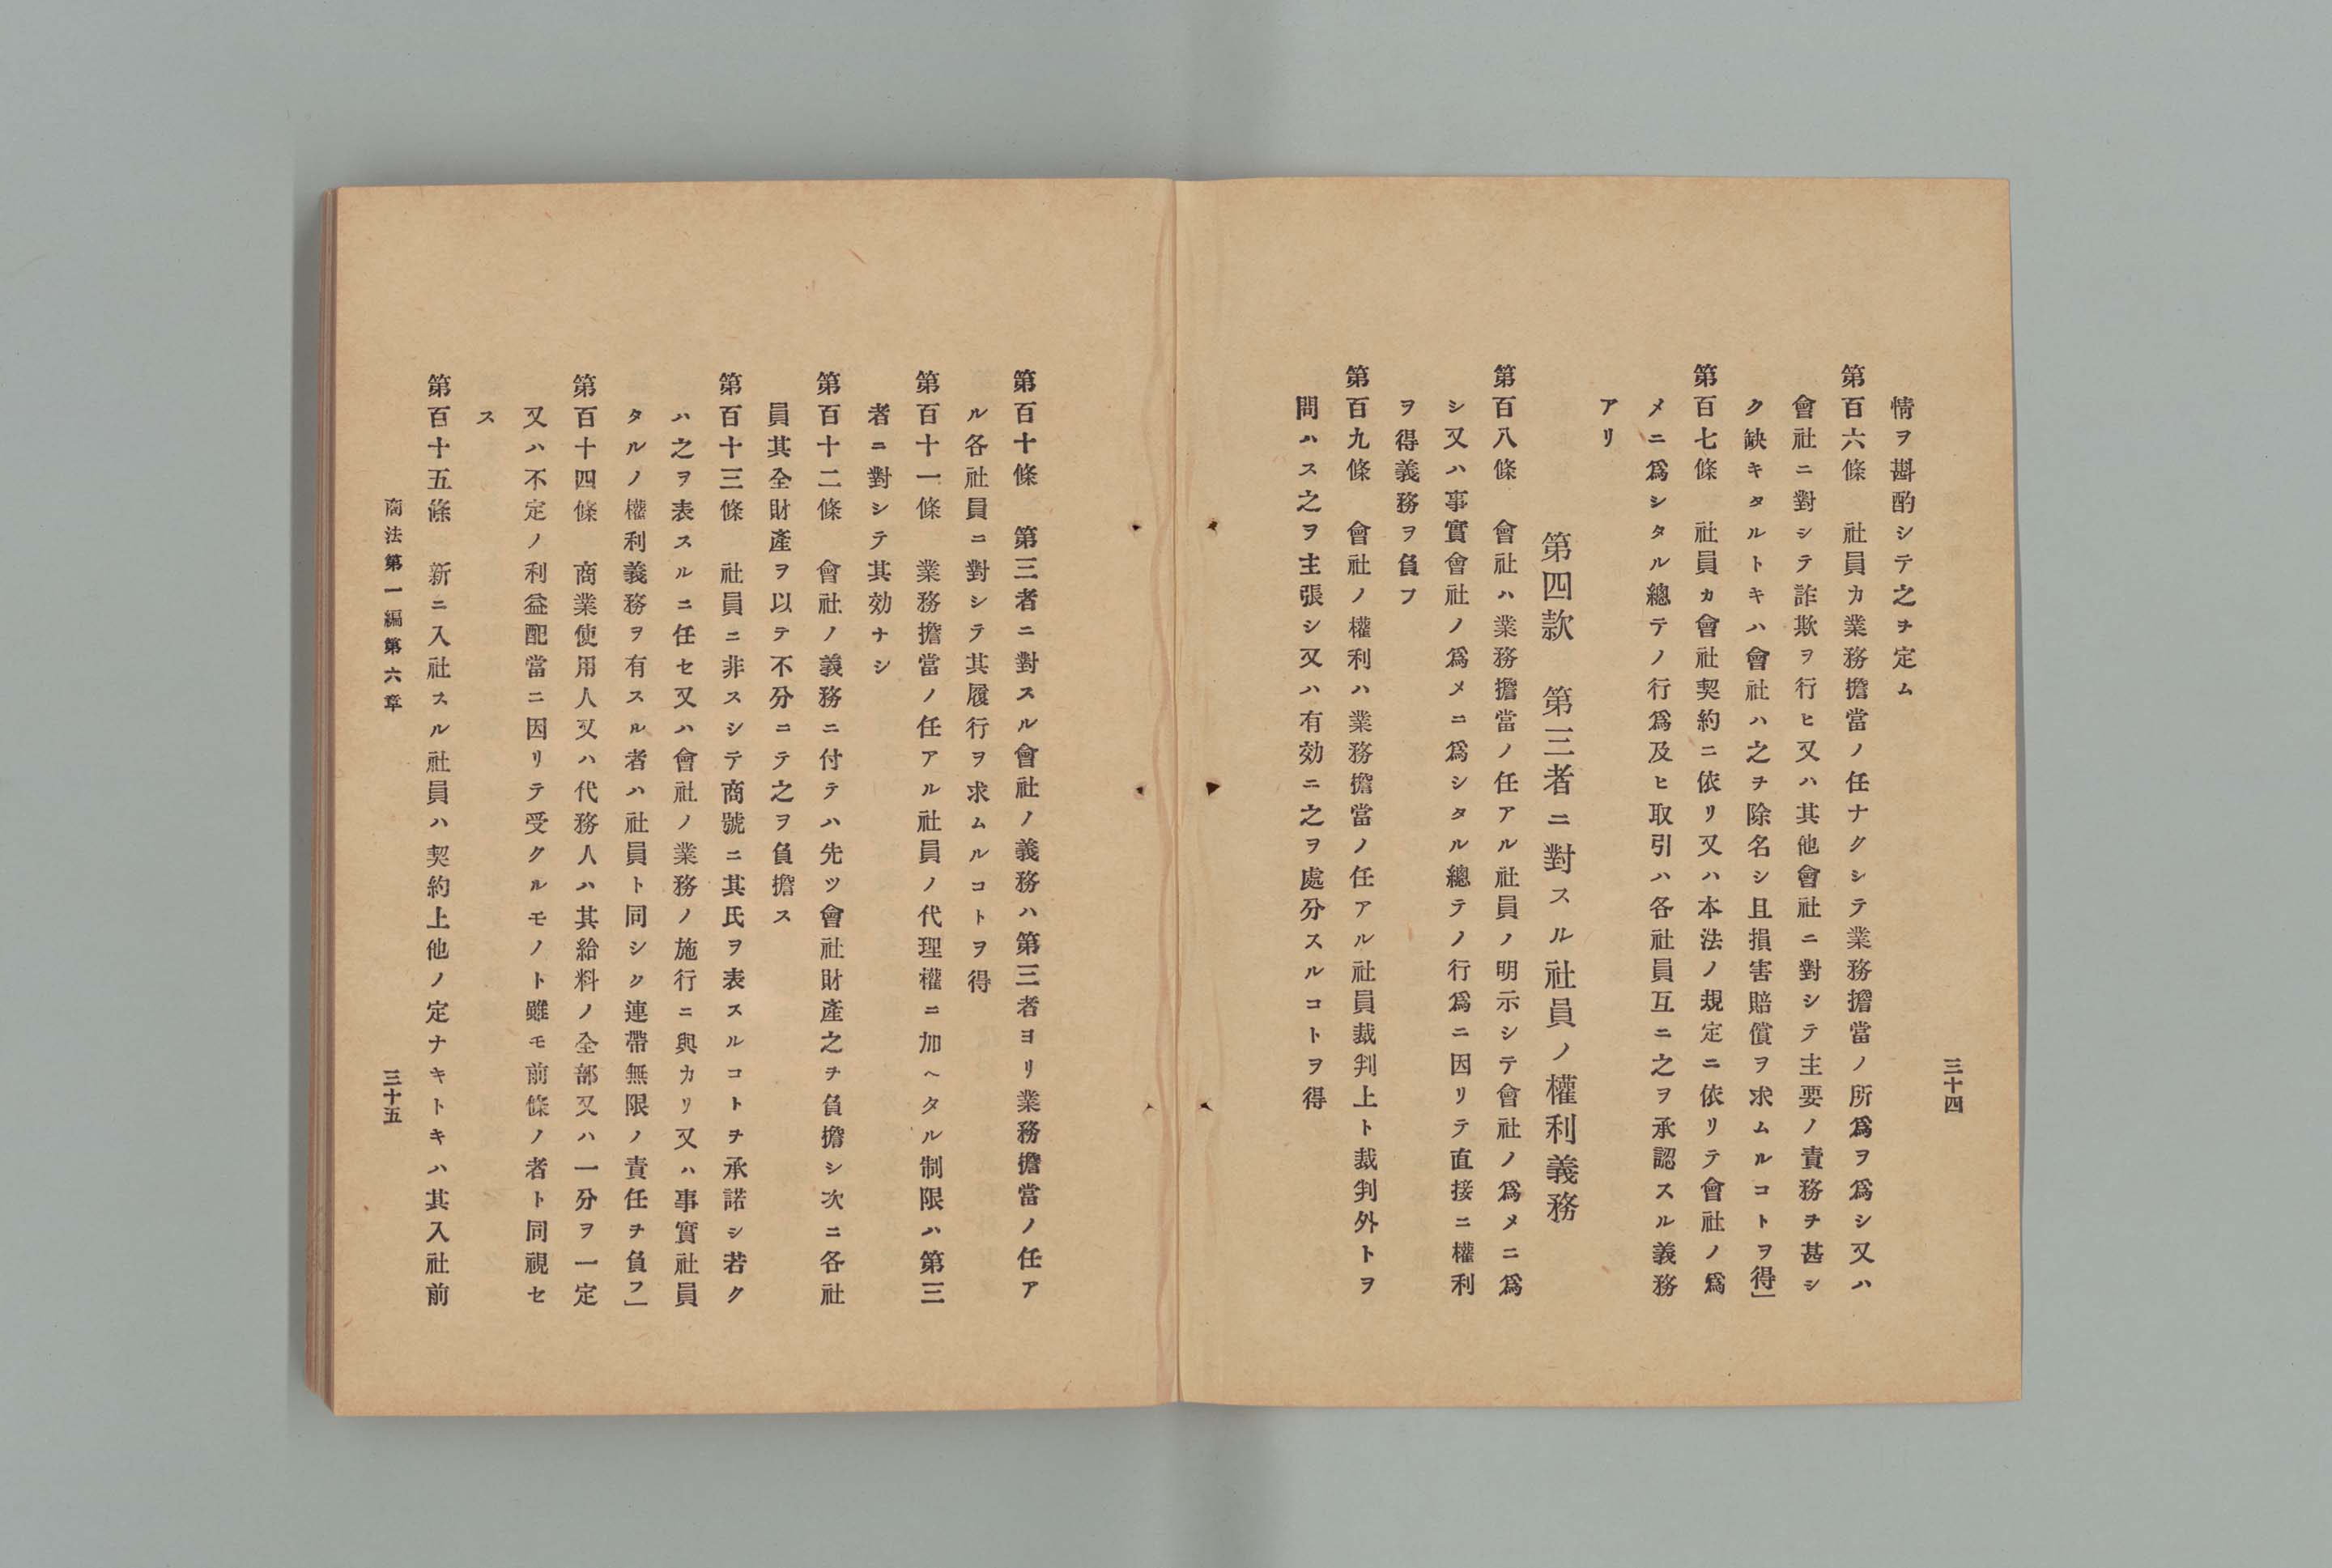 三十四
情ヲ斟酌シテ之ヲ定ム
第百六條　社員カ業務擔當ノ任ナクシテ業務擔當ノ所爲ヲ爲シ又ハ
會社ニ對シテ詐欺ヲ行ヒ又ハ其他會社ニ對シテ主要ノ責務ヲ甚シ
ク缺キタルトキハ會社ハ之ヲ除名シ且損害賠償ヲ求ムルコトヲ得」
第百七條　社員カ會社契約ニ依リ又ハ本法ノ規定ニ依リテ會社ノ爲
メニ爲シタル總テノ行爲及ヒ取引ハ各社員互ニ之ヲ承認スル義務
アリ
第四款　第三者ニ對スル社員ノ權利義務
第百八條　會社ハ業務擔當ノ任アル社員ノ明示シテ會社ノ爲メニ爲
シ又ハ事實會社ノ爲メニ爲シタル總テノ行爲ニ因リテ直接ニ權利
ヲ得義務ヲ負フ
第百九條　會社ノ權利ハ業務擔當ノ任アル社員裁判上ト裁判外トヲ
問ハス之ヲ主張シ又ハ有効ニ之ヲ處分スルコトヲ得
第百十條　第三者ニ對スル會社ノ義務ハ第三者ヨリ業務擔當ノ任ア
ル各社員ニ對シテ其履行ヲ求ムルコトヲ得
第百十一條　業務擔當ノ任アル社員ノ代理權ニ加ヘタル制限ハ第三
者ニ對シテ其効ナシ
第百十二條　會社ノ義務ニ付テハ先ツ會社財產之ヲ負擔シ次ニ各社
員其全財產ヲ以テ不分ニテ之ヲ負擔ス
第百十三條　社員ニ非スシテ商號ニ其氏ヲ表スルコトヲ承諾シ若ク
ハ之ヲ表スルニ任セ又ハ會社ノ業務ノ施行ニ與カリ又ハ事實社員
タルノ權利義務ヲ有スル者ハ社員ト同シク連帶無限ノ責任ヲ負フ」
第百十四條　商業使用人又ハ代務人ハ其給料ノ全部又ハ一分ヲ一定
又ハ不定ノ利益配當ニ因リテ受クルモノト雖モ前條ノ者ト同視セ
ス
第百十五條　新ニ入社スル社員ハ契約上他ノ定ナキトキハ其入社前
商法第一編第六章
三十五